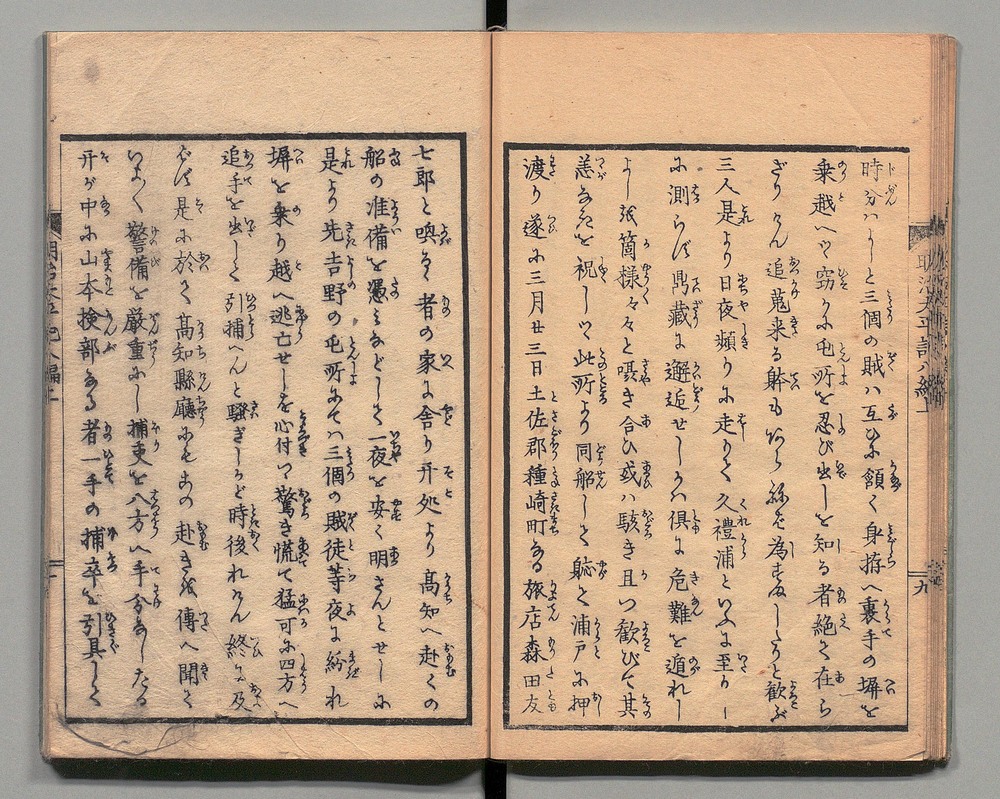 時分ハよしと三個の賊ハ互ひに頷く身拵へ裏手の塀を
乗越へつ窃かに屯所を忍び出しを知る者絶て在ら
ざりけん追蒐来る躰もあら
三人是より日夜頻りに走りて久禮浦といふに至りし
に測らず鼎藏に邂逅せしかハ倶に危難を遁れし
よし箇様々々と囁き合ひ或ハ駭き且つ歓びて其
恙なきを祝しつ此所より同船して浦戸に押
渡り遂に三月廿三日土佐郡種崎町なる旅店森田友
七郎と喚る者の家に舎り开処より高知へ赴くの
船の准備を憑みなどして一夜を安く明さんとせしに
是より先吉野の屯所にてハ三個の賊徒等夜に紛れ
塀を乗り越へ逃亡せしを心付て驚き慌て猛可に四方へ
追手を出して引捕へんと騒ぎしかど時後れけん終に及
ばず是に於て高知縣廳にもこの赴きを傳へ聞て
いよく警備を厳重にし捕吏を八方へ手分なしたる
开が中に山本検部なる者一手の捕卒を引具して
明治太平記八編上
九